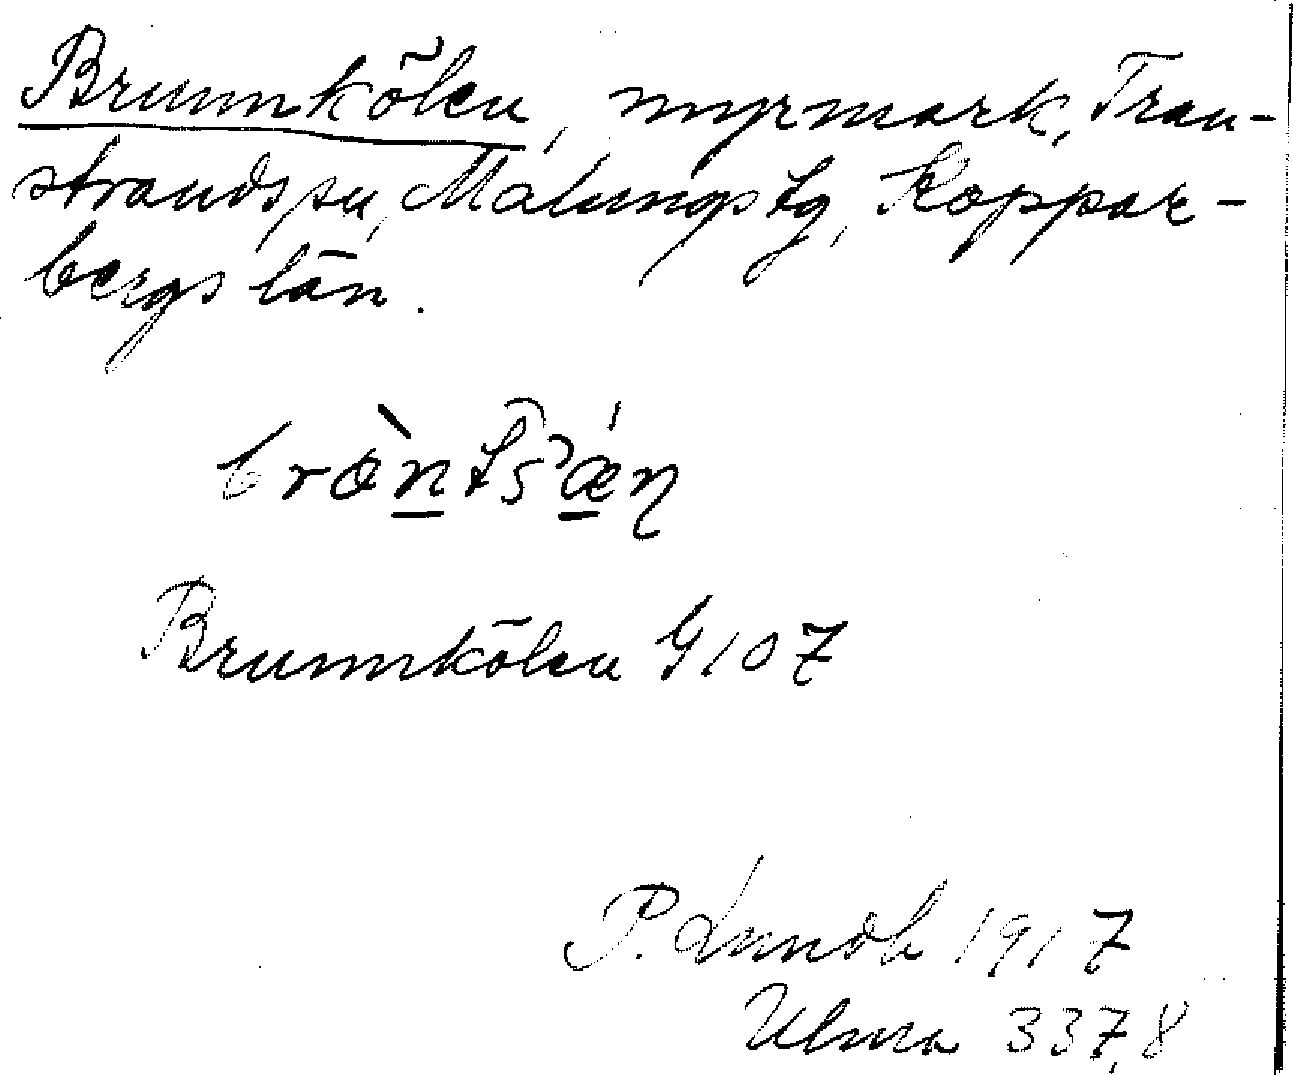 Brunnkölen, myrmark, Tran-
strands sn, Malungs tg, Koppar-
bergs län.
Brunnkölen G 107
P. Lindh 1917
Ulma 337,8